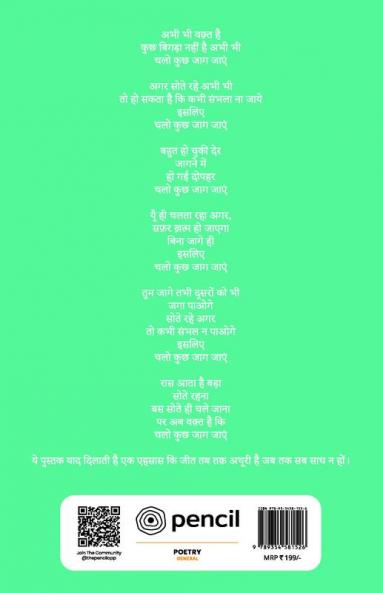 अभी भी वक़्त है
कुछ बिगड़ा नहीं है अभी भी
चलो कुछ जाग जाएं
अगर सोते रहे अभी भी
तो हो सकता है कि कभी संभला ना जाये
इसलिए
चलो कुछ जाग जाएं
बहुत हो चुकी देर
जागने में
हो गई दोपहर
चलो कुछ जाग जाएं
यूँ ही चलता रहा अगर,
सफ़र ख़त्म हो जाएगा
बिना जागे ही
इसलिए
चलो कुछ जाग जाएं
तुम जागे तभी दुसरों को भी
जगा पाओगे
सोते रहे अगर
तो कभी संभल न पाओगे
इसलिए
चलो कुछ जाग जाएं
रास आता है बड़ा
सोते रहना
बस सोते ही चले जाना
पर अब वक़्त है कि
चलो कुछ जाग जाएं
ये पुस्तक याद दिलाती है एक एहसास कि जीत तब तक़ अधूरी है अब तक सब साथ न हों।
Join The Community
@thepencilapp
pencil
POETRY
GENERAL
9 789354 581526
MRP ₹ 199/-